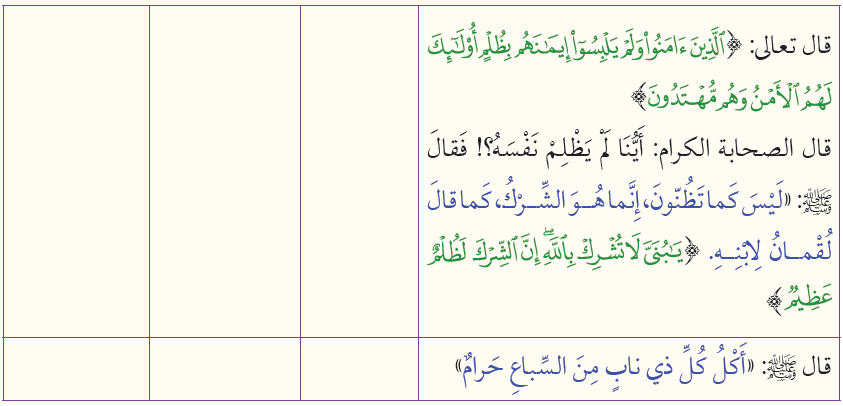 قال تعالى: ﴿ٱلَّذِينَ ءَامَنُوا۟ وَلَمْ يَلْبِسُوٓا۟ إِيمَٰنَهُم بِظُلْمٍ أُو۟لَٰٓئِكَ
لَهُمُ ٱلْأَمْنُ وَهُم مُّهْتَدُونَ﴾
قال الصحابة الكرام: أَيُّنَا لَمْ يَظْلِمْ نَفْسَهُ؟! فَقالَ
ﷺ: «لَيْسَ كَما تَظُنّونَ، إِنَّما هُـوَ الشِّـرْكُ، كَما قالَ
لُقْمـانُ لِابْنِـهِ. ﴿يَٰبُنَىَّ لَا تُشْرِكْ بِٱللَّهِ ۖ إِنَّ ٱلشِّرْكَ لَظُلْمٌ
عَظِيمٌ﴾
قال ﷺ: «أَكْلُ كُلِّ ذي نابٍ مِنَ السِّباعِ حَرامٌ»